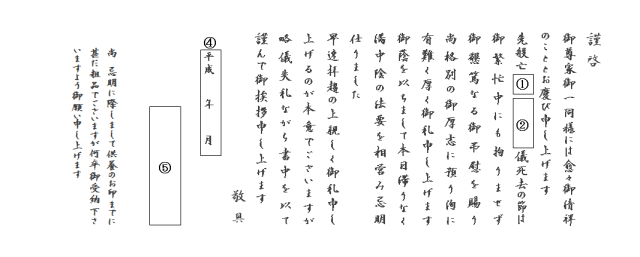 謹啓
御尊家御一同様には愈々御清祥
のこととお慶び申し上げます
先般亡 ① ② 儀死去の節は
御繁忙中にも拘りませず
御懇篤なる御弔慰を賜り
尚格別の御厚志に預り洵に
有難く厚く御礼申し上げます
御蔭を以ちまして本日滞りなく
満中陰の法要を相営み忌明
仕りました
早速拝趨の上親しく御礼申し
上げるのが本意でございますが
略儀失礼ながら書中を以て
謹んで御挨拶申し上げます
敬具
④
平成 年 月
⑤
尚 忌明に際しまして供養のお印までに
甚だ粗品でございますが何卒御受納下さ
いますよう御願い申し上げます